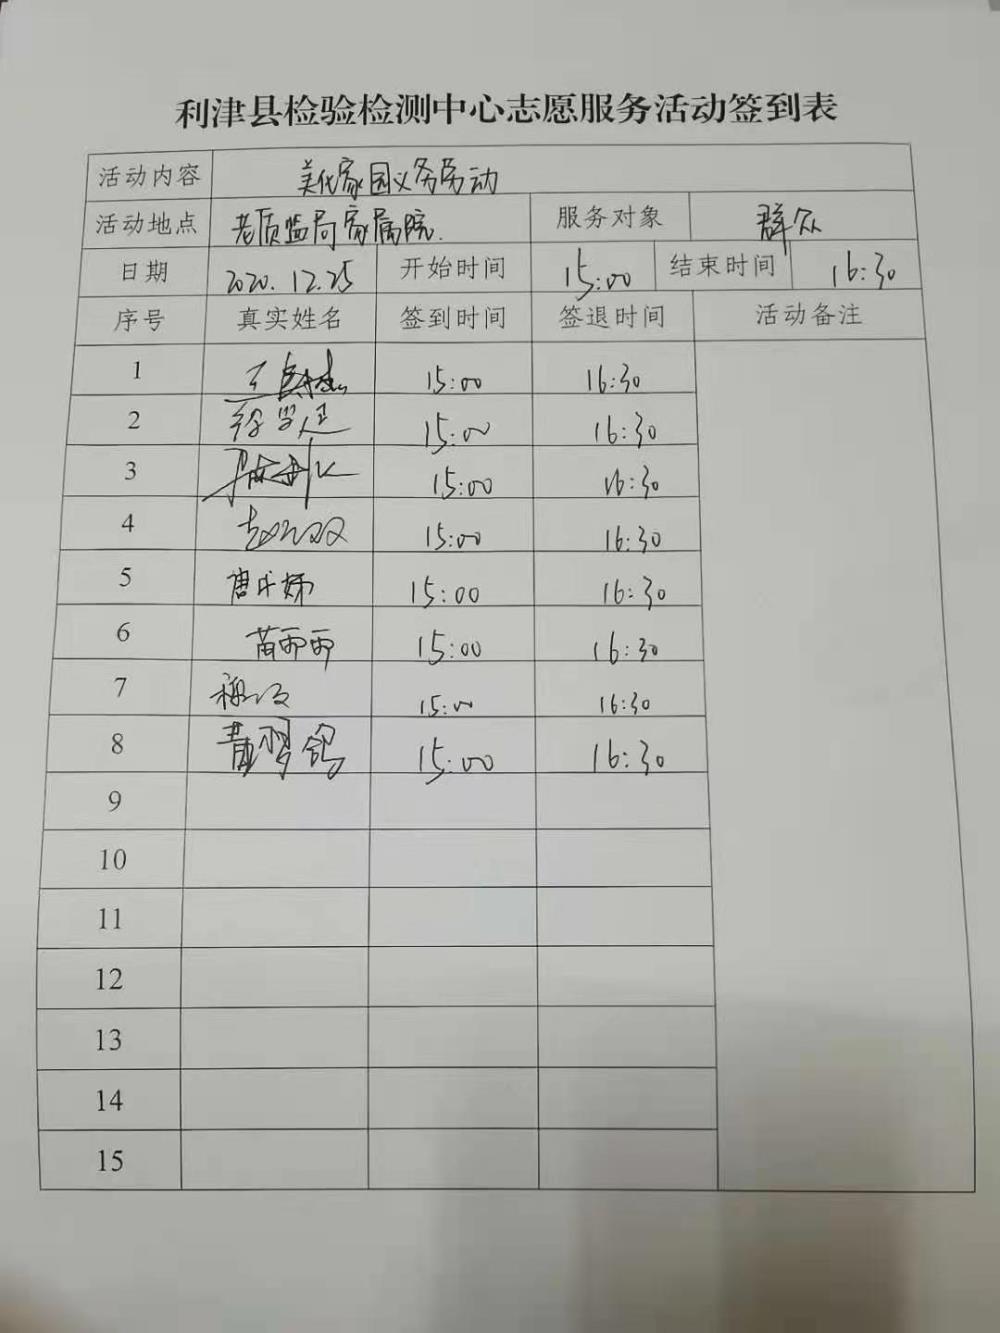 利津县检验检测中心志愿服务活动签到表
活动内容 美化家园义务劳动
活动地点 老质监局家属院. 服务对象 群众
日期 2020.12.25 开始时间 15:00 结束时间 16:30
序号 真实姓名 签到时间 签退时间 活动备注
1 15:00 16:30
2 15:00 16:30
3 15:00 16:30
4 15:00 16:30
5 15:00 16:30
6 苗雨雨 15:00 16:30
7 15:00 16:30
8 15:00 16:30
9
10
11
12
13
14
15